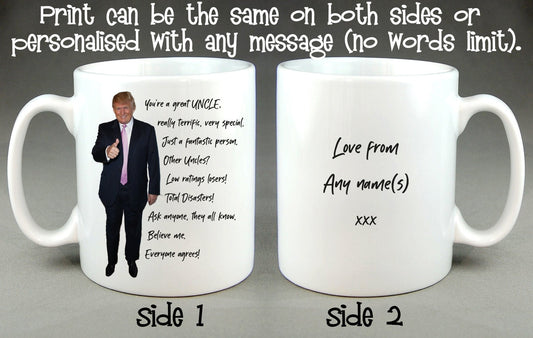 Print can be the same on both sides or
personalised with any message (no words limit).
You're a great UNCLE.
really terrific, very special,
Just a fantastic person.
Other Uncles?
Low ratings losers!
Total Disasters!
Ask anyone, they all know.
Believe me.
Everyone agrees!
Love from
Any name(s)
xxx
side 1
side 2